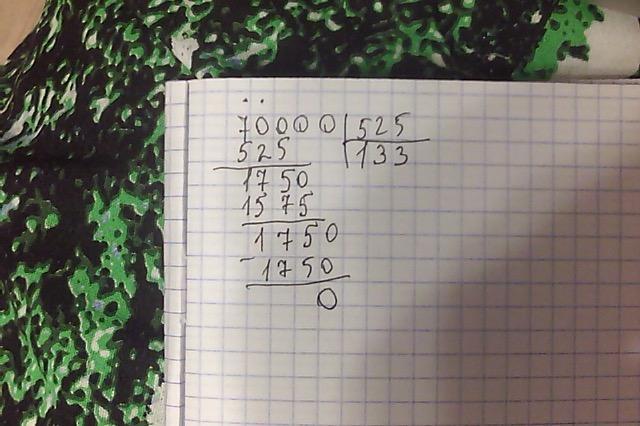 70000 525
525 133
1750
1575
1750
- 1750
0